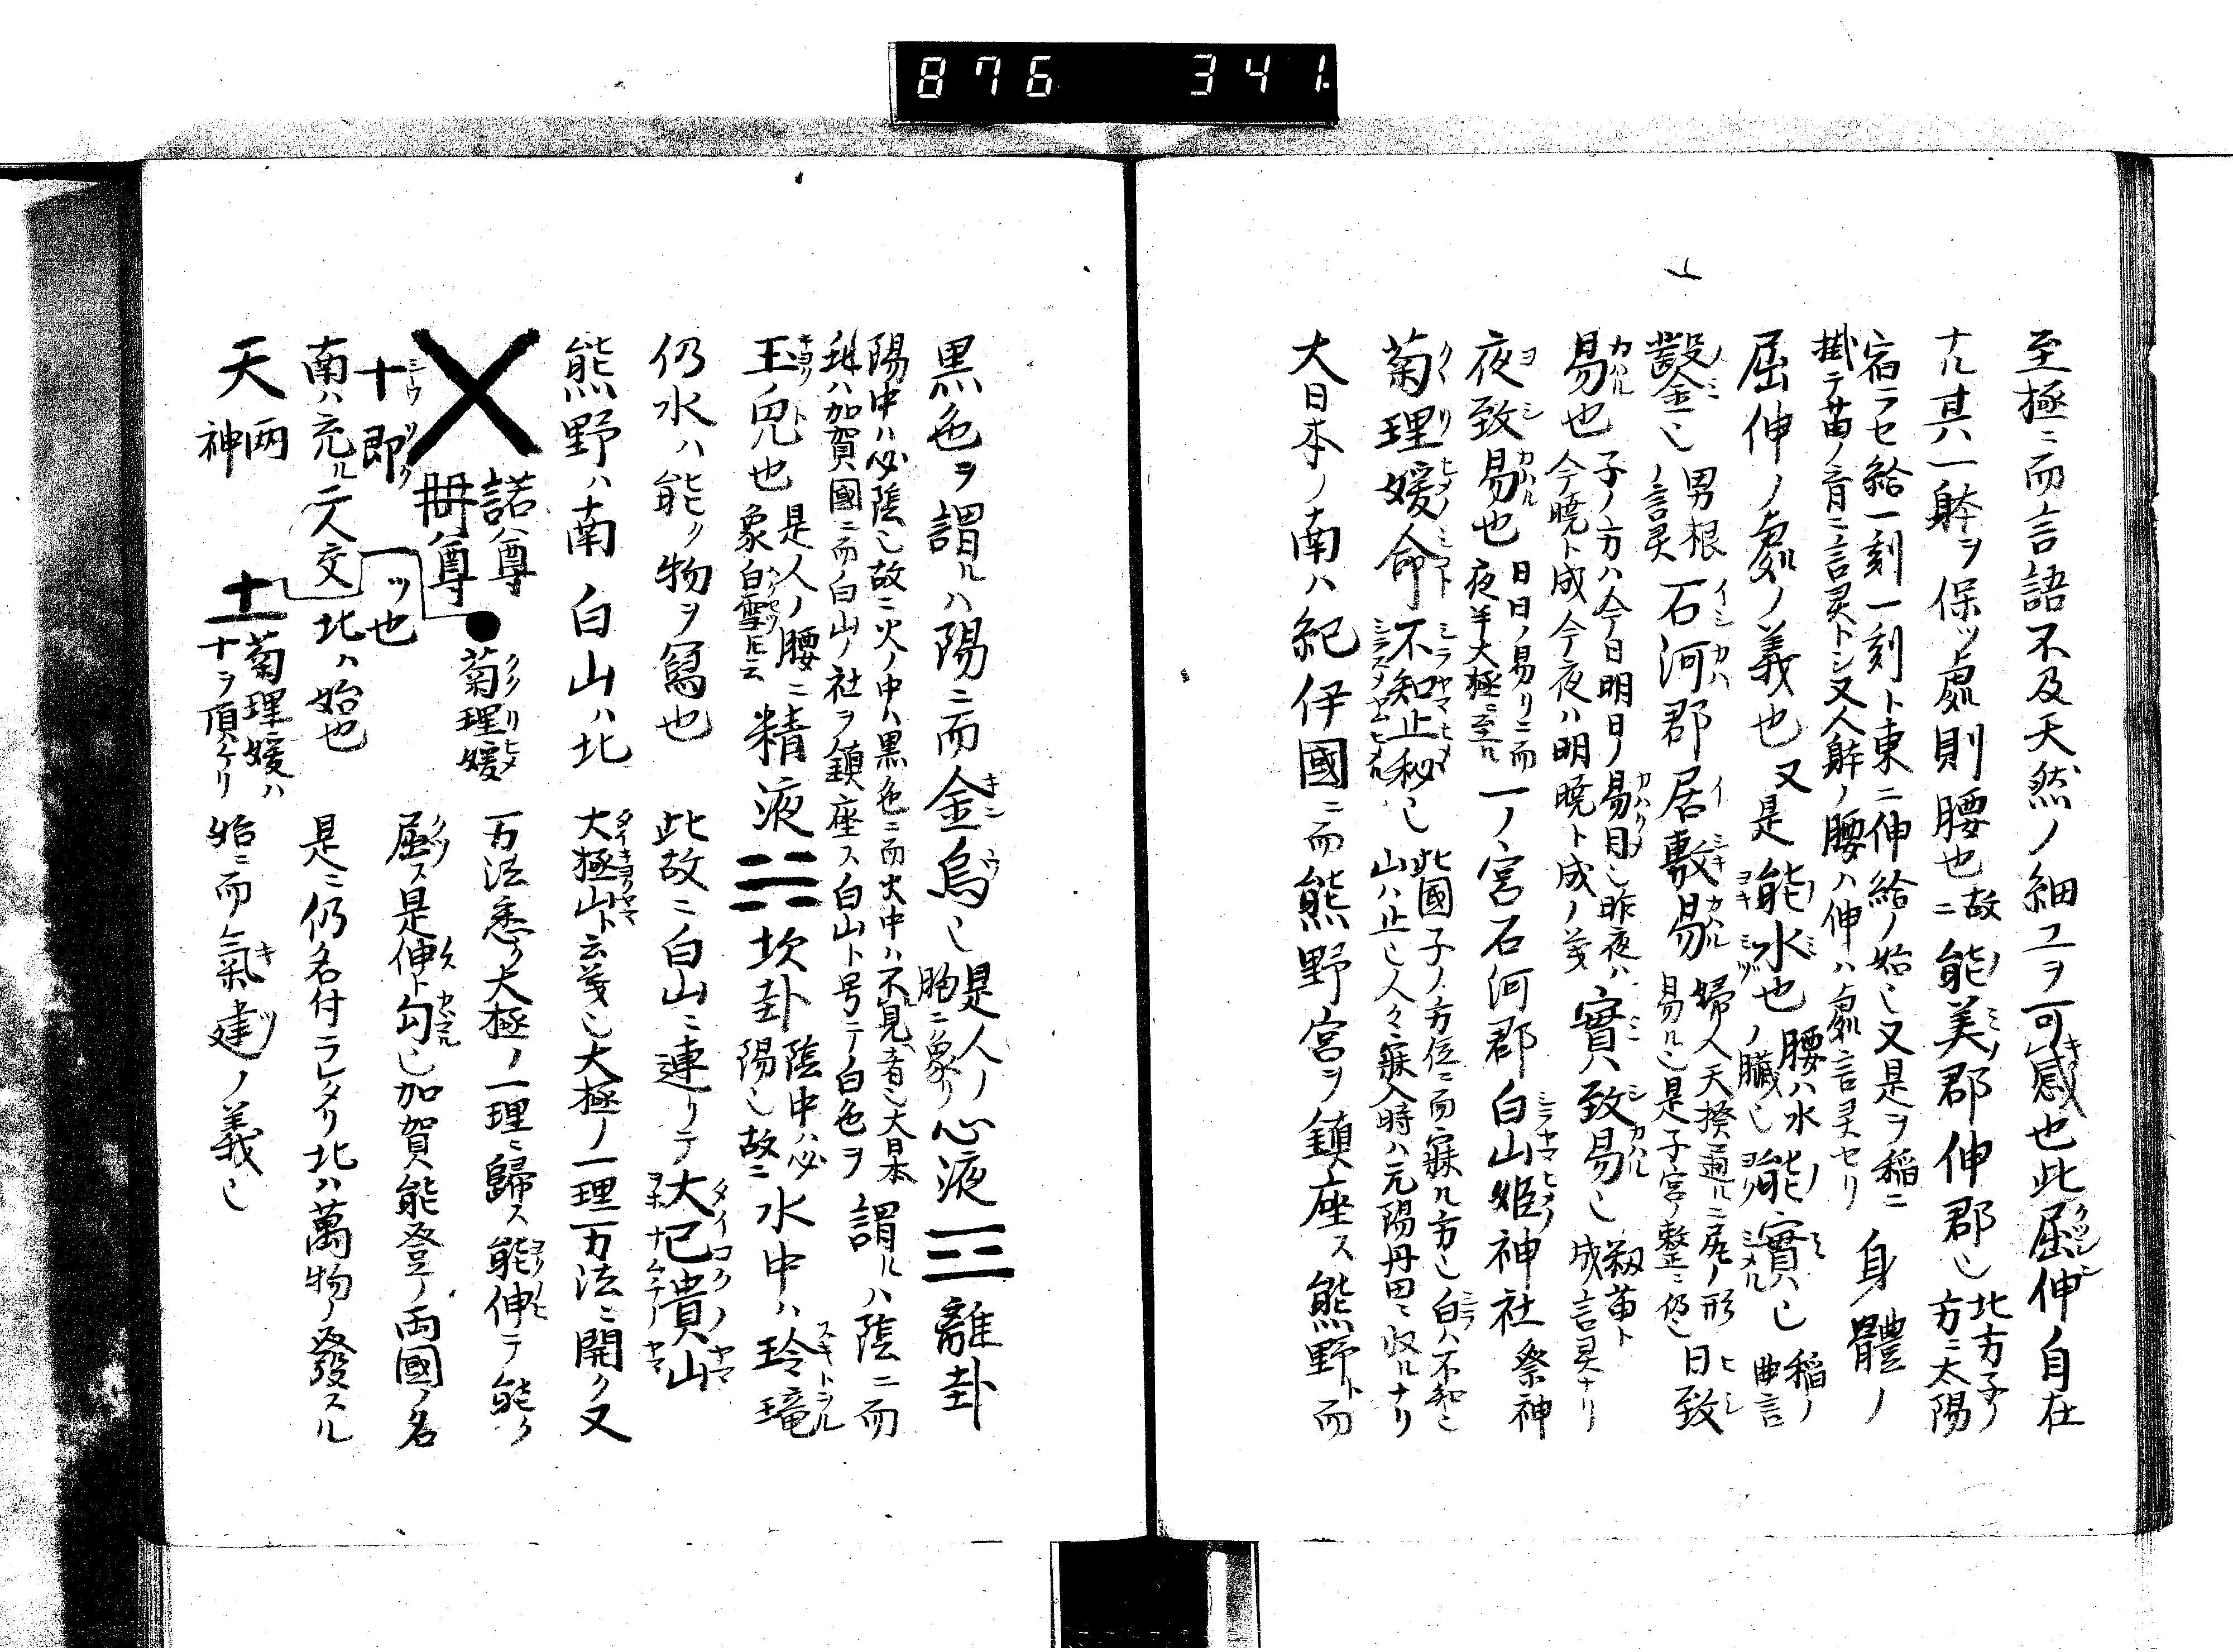 876 341
至極ニ而言語不及天然ノ細工ヲ可感也此屈伸自在
ナル其ハ一躰ヲ保ツ處則腰也故ニ能美郡伸郡也北方子ノ方ニ太陽
宿ラセ給一刻一刻ト東ニ伸給ノ始也又是ヲ稲ニ
掛テ苗ノ育ニ言灵トシ又人躰ノ腰ハ伸ハ處言灵セリ 身體ノ
屈伸ノ處ノ義也又是能水也腰ハ水ノ臓也能實ハ也稲ノ曲言
鑿也男根ノ言灵石河郡居敷易婦人天揆通ルニ尻ノ形易ルシ是子宮ノ整ニ仍也日致
易也子ノ方ハ今日明日ノ易目也昨夜ハ今暁ト成今夜ハ明暁ト成ノ義實ハ致易也籾苗ト成言灵ナリ
夜致易也日日ノ易リニ而夜半大極ニ至ル一ノ宮石河郡白山姫神社祭神
菊理媛命不知止秘也此國子ノ方位ニ而寐ル方也白ハ不知也山ハ止也人々寐入時ハ元陽丹田ニ収ルナリ
大日本ノ南ハ紀伊國ニ而熊野宮ヲ鎮座ス熊野ト而
黒色ヲ謂ルハ陽ニ而金烏也是人ノ胸ニ象リ心液☲離卦
陽中ハ必陰也故ニ火ノ中ハ黒色ニ而火中ハ不見者也大日本
北ハ加賀國ニ而白山ノ社ヲ鎮座ス白山ト号テ白色ヲ 謂ルハ陰ニ而
玉兎也是人ノ腰ニ象白雪ルト云精液☵坎卦陰中ハ必陽也故ニ水中ハ玲瓏
仍水ハ能ク物ヲ寫也 此故ニ白山ニ連リテ大己貴山
熊野ハ南白山ハ北 大極山ト云義也大極ノ一理万法ニ開ク又
諾尊 冊尊 ●菊理媛 万法悉ク大極ノ一理ニ歸ス能伸テ能ク
十即一ツ也 屈ス是伸ト勾也加賀能登ノ両國ノ名
南ハ充ル二人交北ハ始也 是ニ仍名付ラレタリ北ハ萬物ノ發スル
天両神 土菊理媛ハ十ヲ頂ケリ 始ニ而氣建ノ義也